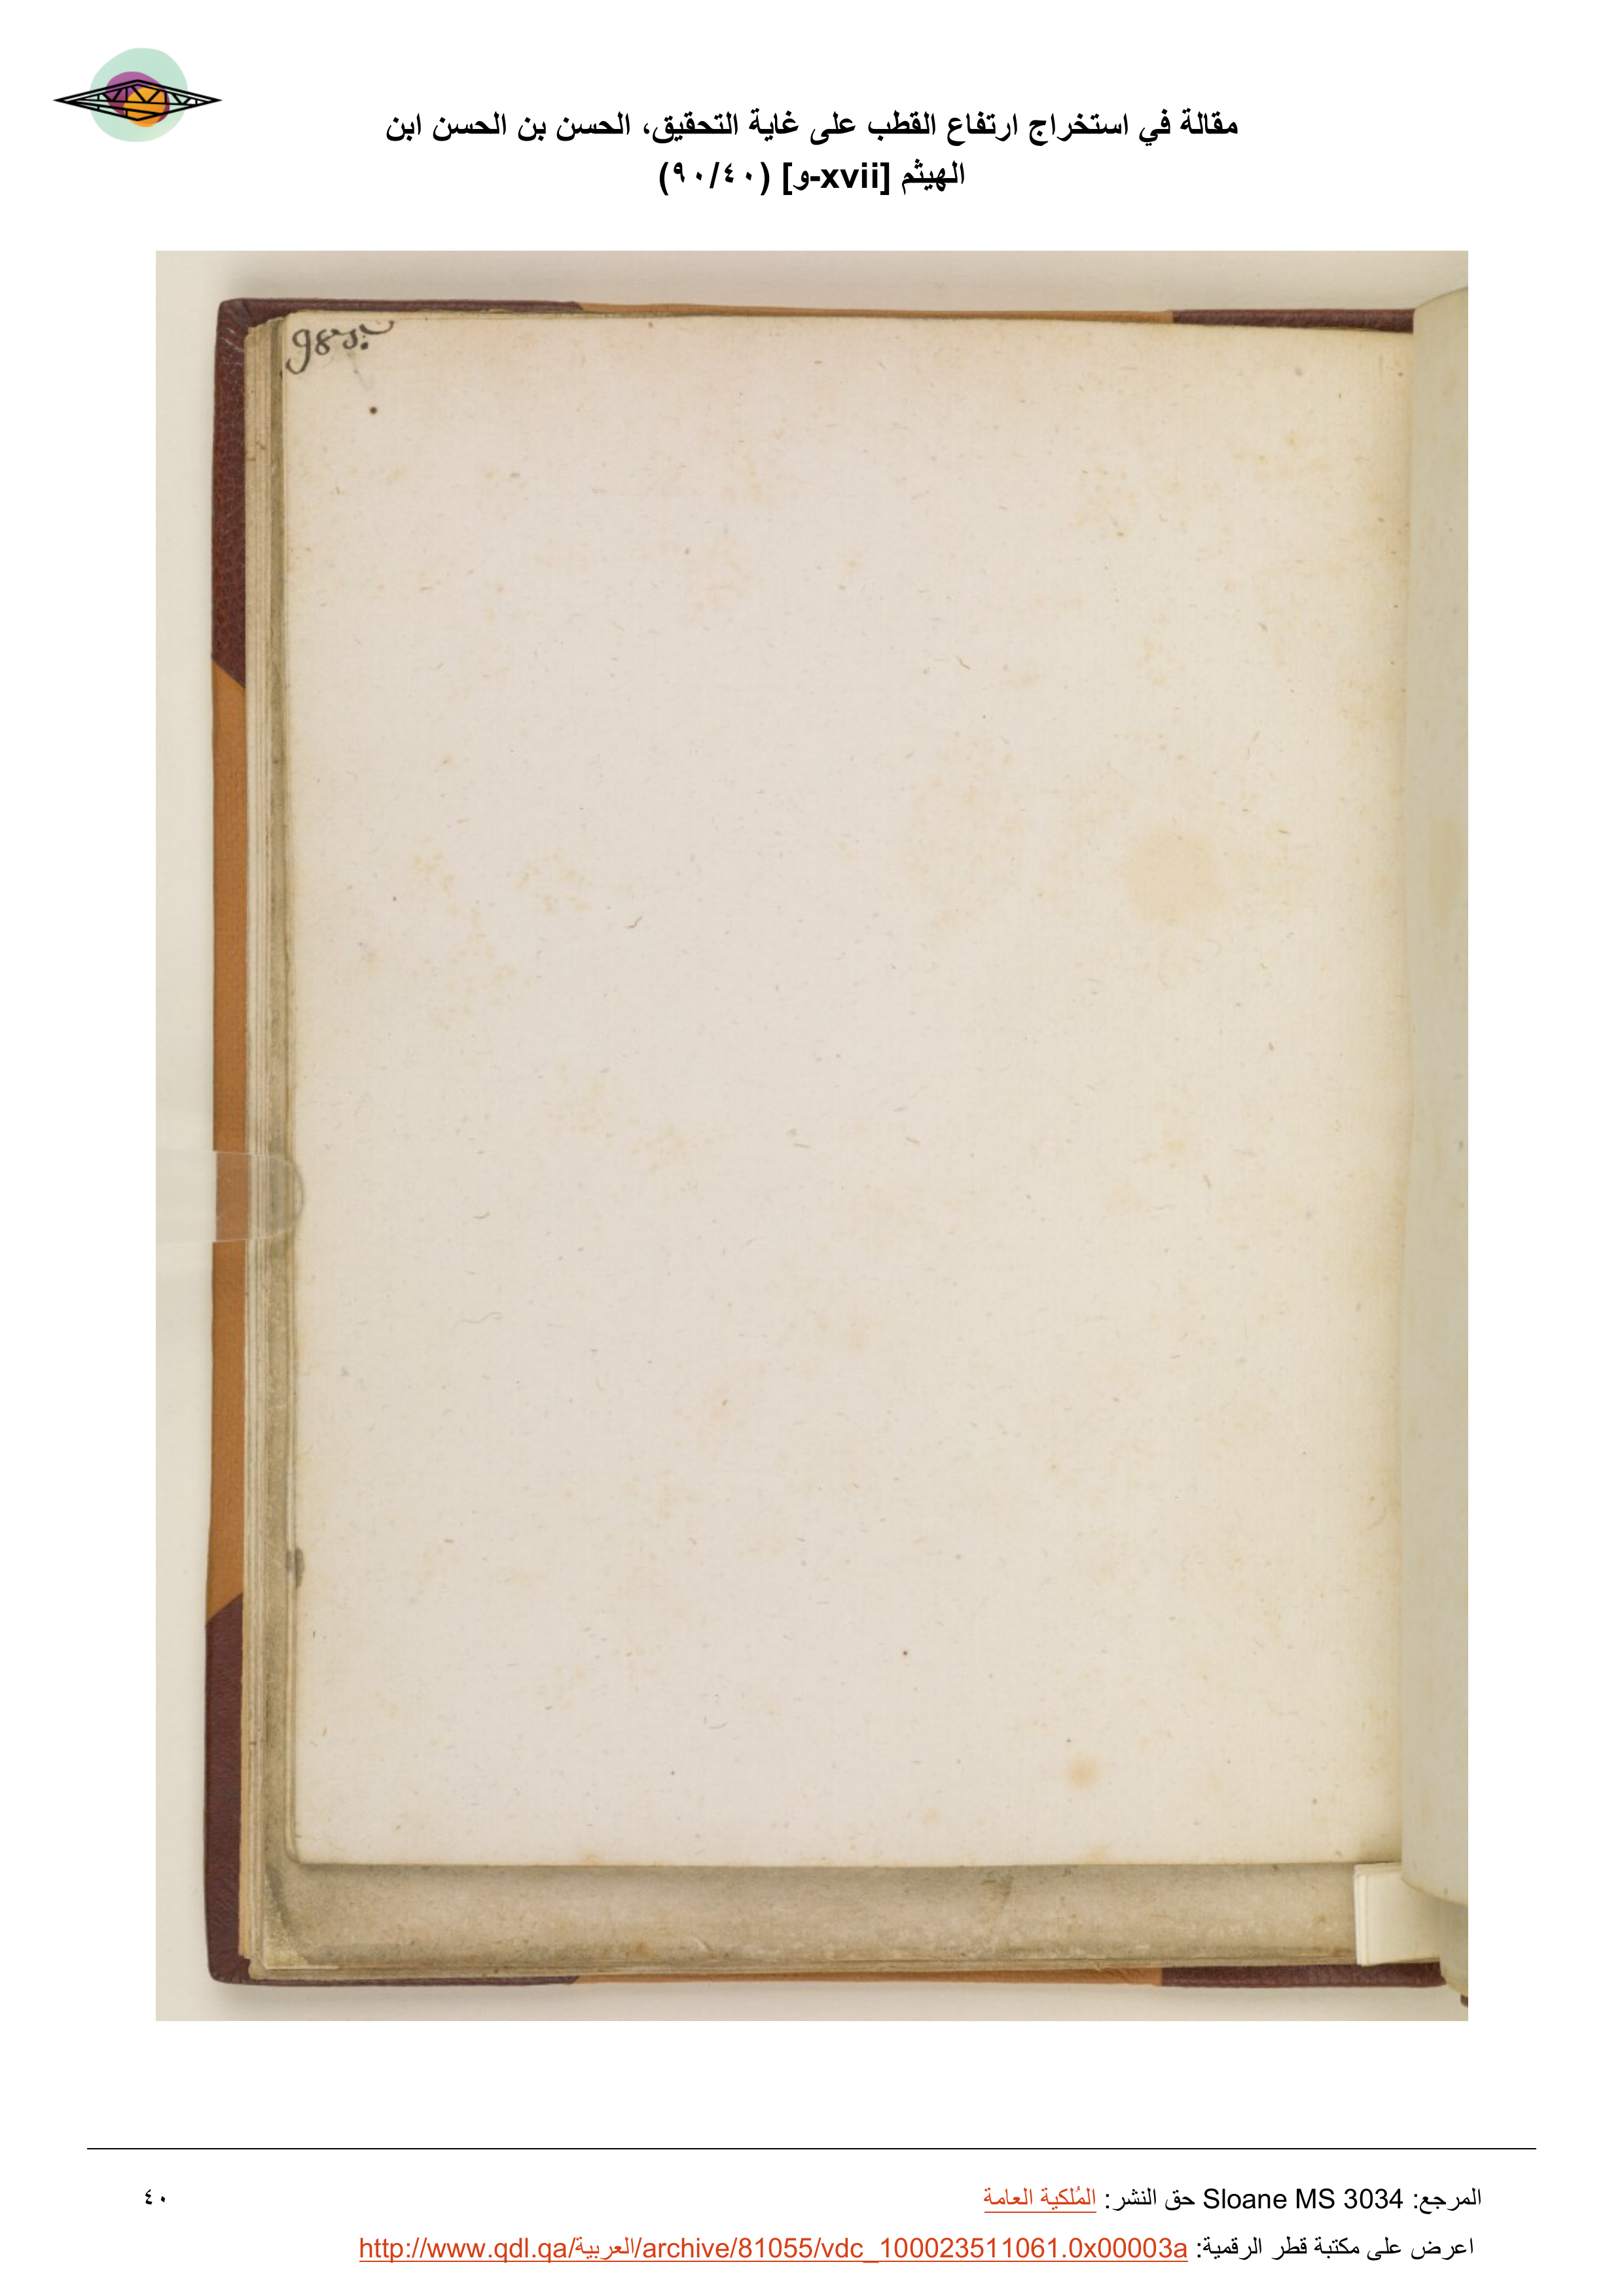 مقالة في استخراج ارتفاع القطب على غاية التحقيق، الحسن بن الحسن ابن
الهيثم [xvii-و] (٩٠/٤٠)
985.
المرجع: Sloane MS 3034 حق النشر: المُلكية العامة
٤٠
اعرض على مكتبة قطر الرقمية: http://www.qdl.qa/العربية/archive/81055/vdc_100023511061.0x00003a